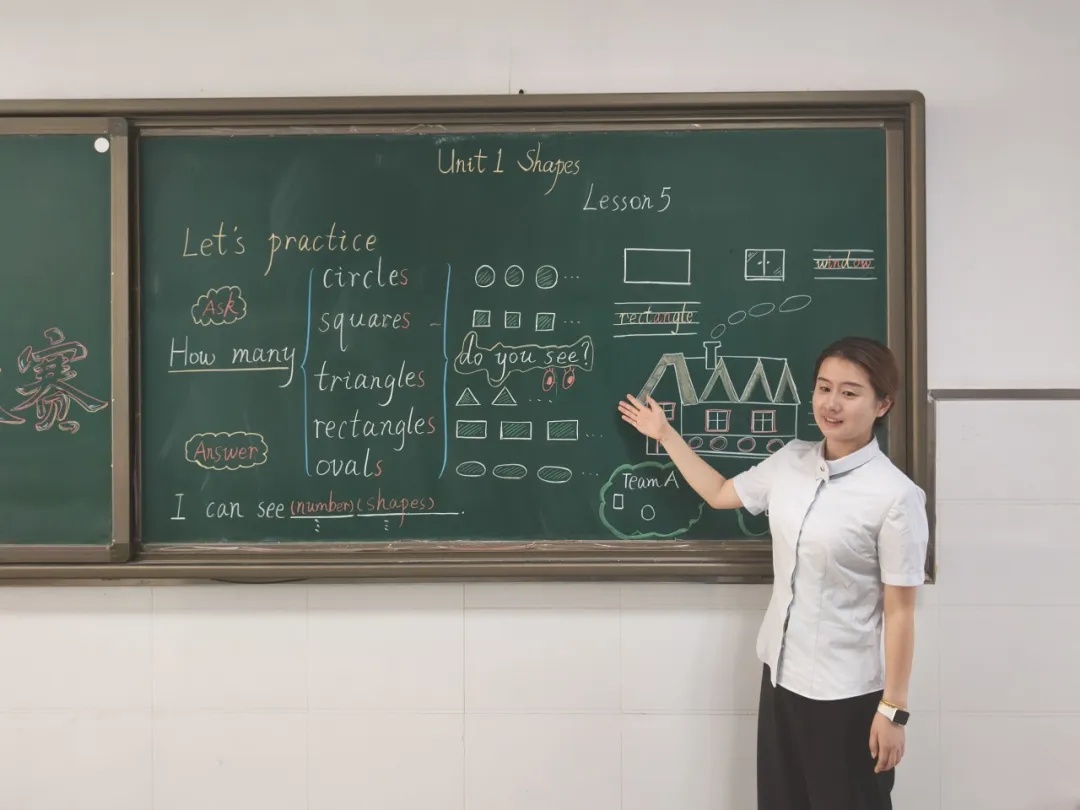 赛
Unit 1 Shapes
Lesson 5
Let's practice
Ask
How many
circles
squares
triangles
rectangles
ovals
do you see?
Answer
I can see (number) (shapes).
rectangle
window
Team A